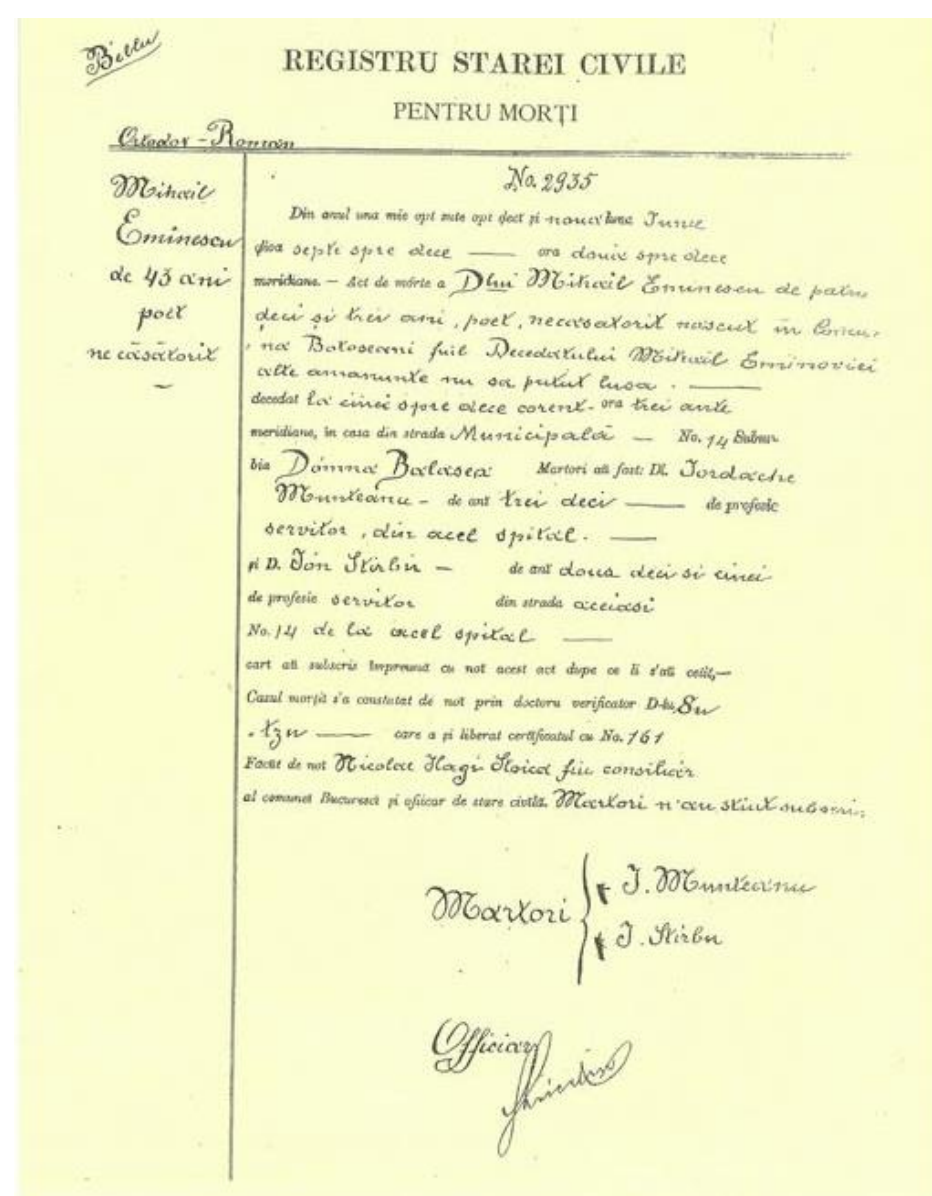 Bellu
REGISTRU STAREI CIVILE
PENTRU MORȚI
Ortodox - Român
Mihail
Eminescu
de 43 ani
poet
necăsătorit
No. 2935
Din anul una mie opt sute opt deci și nouă luna Iunie
ḑioa septe spre dece — ora două spre dece
meridiane. — Act de mórte a Dlui Mihail Eminescu de patru
deci și trei ani, poet, necasatorit nascut în Comu-
na Botoseani fiul Decedatului Mihail Eminovici
alte amanunte nu sa putut lua. —
decedat la cinci spre dece corent - ora trei ante
meridiane, în casa din strada Municipală — No. 14 Subur
bia Dómna Balasea Martori aŭ fost: Dl. Iordache
Munteanu - de anĭ trei deci — de profesie
servitor, din acel spital. —
și D. Ión Stirbu — de anĭ doua deci si cinci
de profesie servitor din strada aceiasi
No. 14 de la acel spital —
carĭ aŭ subscris împreună cu noĭ acest act dupe ce li s'aŭ cetit,—
Casul morțiĭ s'a constatat de noĭ prin doctoru verificator D-lu Su
tzu — care a și liberat certificatul cu No. 161
Facut de noĭ Nicolae Hagi Stoica fiu consiliér
al comuneĭ Bucurescĭ și ofiicar de stare civilă. Martori n'au stiut subscri
Martori { + I. Munteanu
+ I. Stirbu
Officiar